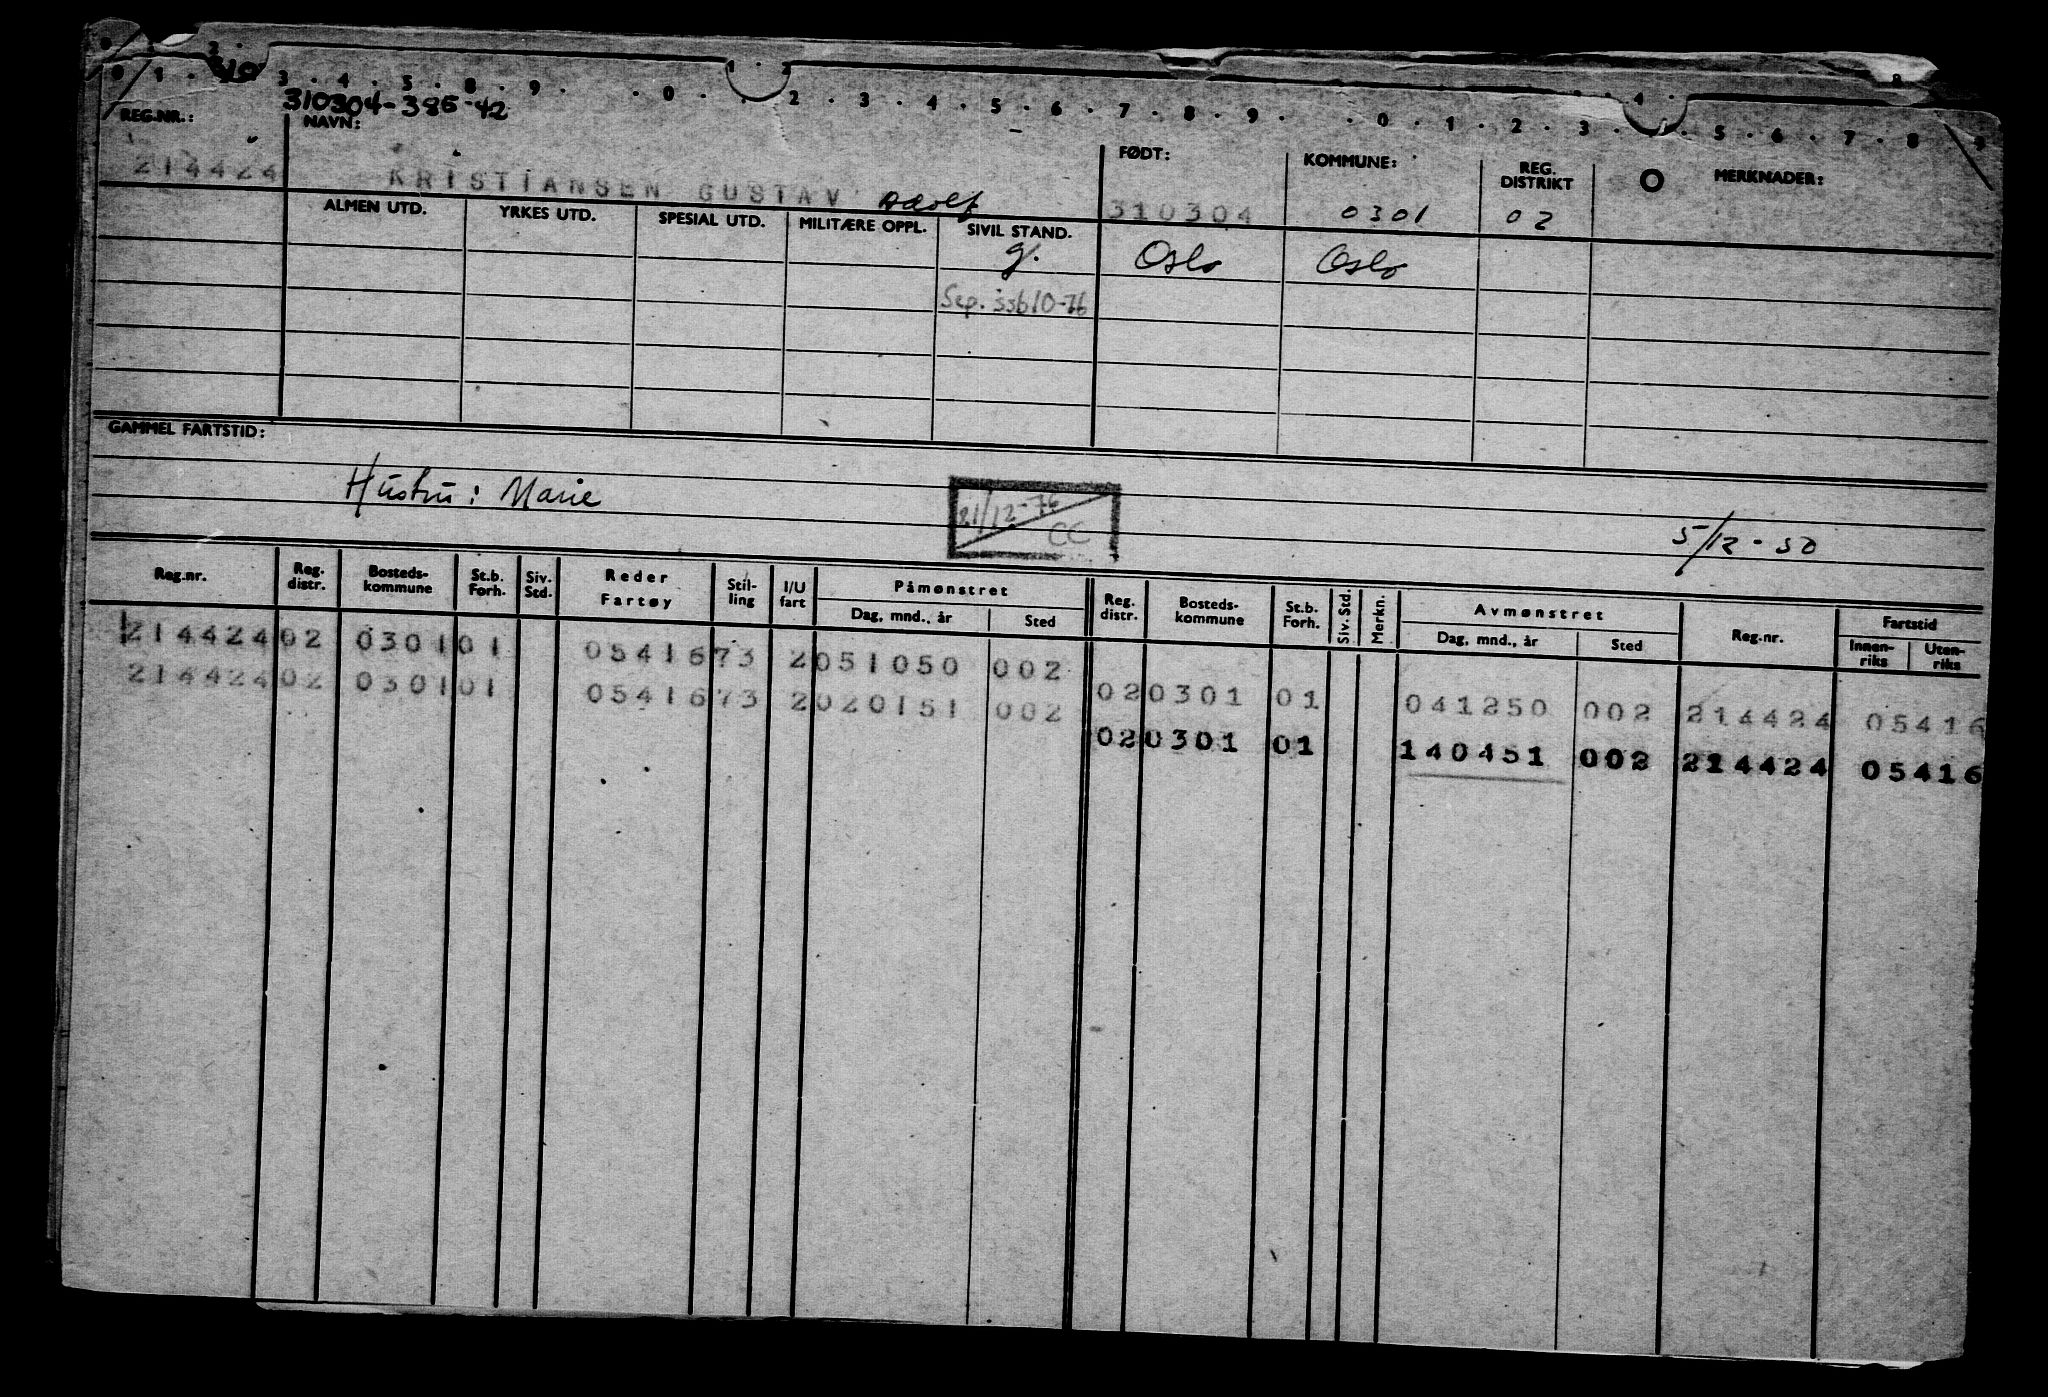 0 1 . 3 . 4 . 5 . 8 . 9 . . 0 . 1 . 2 2 . 3 . 4 . 5 . 6 . 7 . 8 . 9 . . 0 . 1 . 2 . 3 . 4 . 5 . 6 . 7 . 8 . 9
310304-386-42
REG.NR.: NAVN: FØDT: KOMMUNE: REG. DISTRIKT O MERKNADER:
214424 KRISTIANSEN GUSTAV Adolf 310304 0301 02
ALMEN UTD. YRKES UTD. SPESIAL UTD. MILITÆRE OPPL. SIVIL STAND.
g. Oslo Oslo
Sep. ssb10-76
GAMMEL FARTSTID:
Hustru: Marie
21/12-76 CC
5/12-50
Reg.nr. Reg. distr. Bosteds-kommune St.b. Forh. Siv. Std. Reder Fartøy Stil-ling I/U fart Påmønstret Dag, mnd., år Sted Reg. distr. Bosteds-kommune St.b. Forh. Siv. Std. Merkn. Avmønstret Dag, mnd., år Sted Reg.nr. Fartstid Innen-riks Uten-riks
214424 02 0301 01 05416 73 2 051050 002
214424 02 0301 01 05416 73 2 020151 002
02 0301 01 041250 002 214424 05416
02 0301 01 140451 002 214424 05416